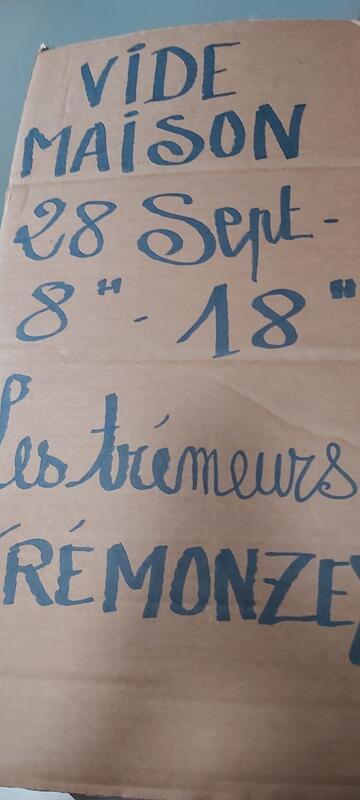 VIDE
MAISON
28 Sept-
8"-18"
Les trémeurs
TRÉMONZEY